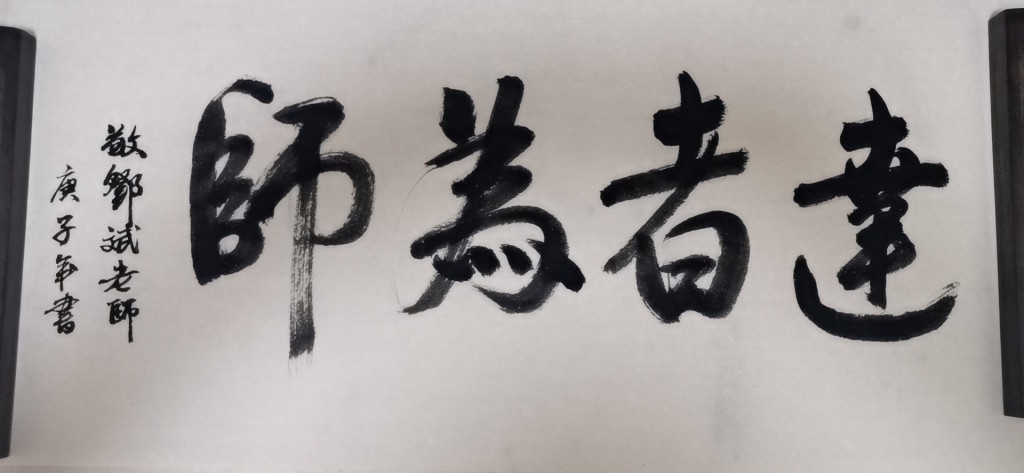 達者為師
敬鄧斌老師
庚子年書